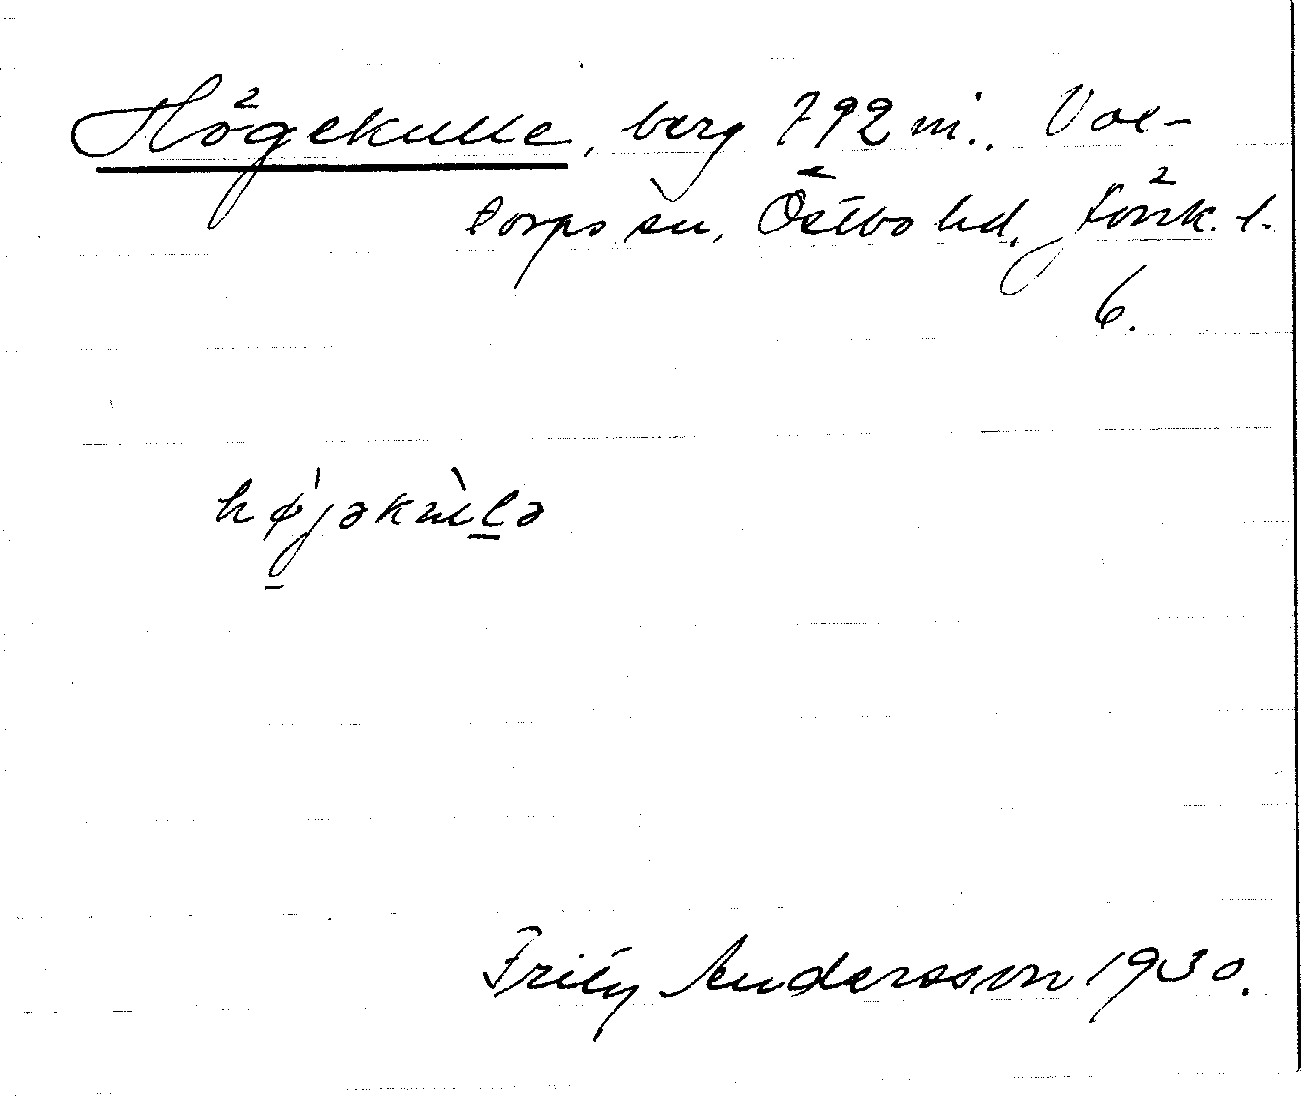 Högekulle, berg 792 m. Voe-
torps sn, Östbo hd, Jönk. l.
6.
høj̱əkul̲ə
Fritz Andersson 1930.